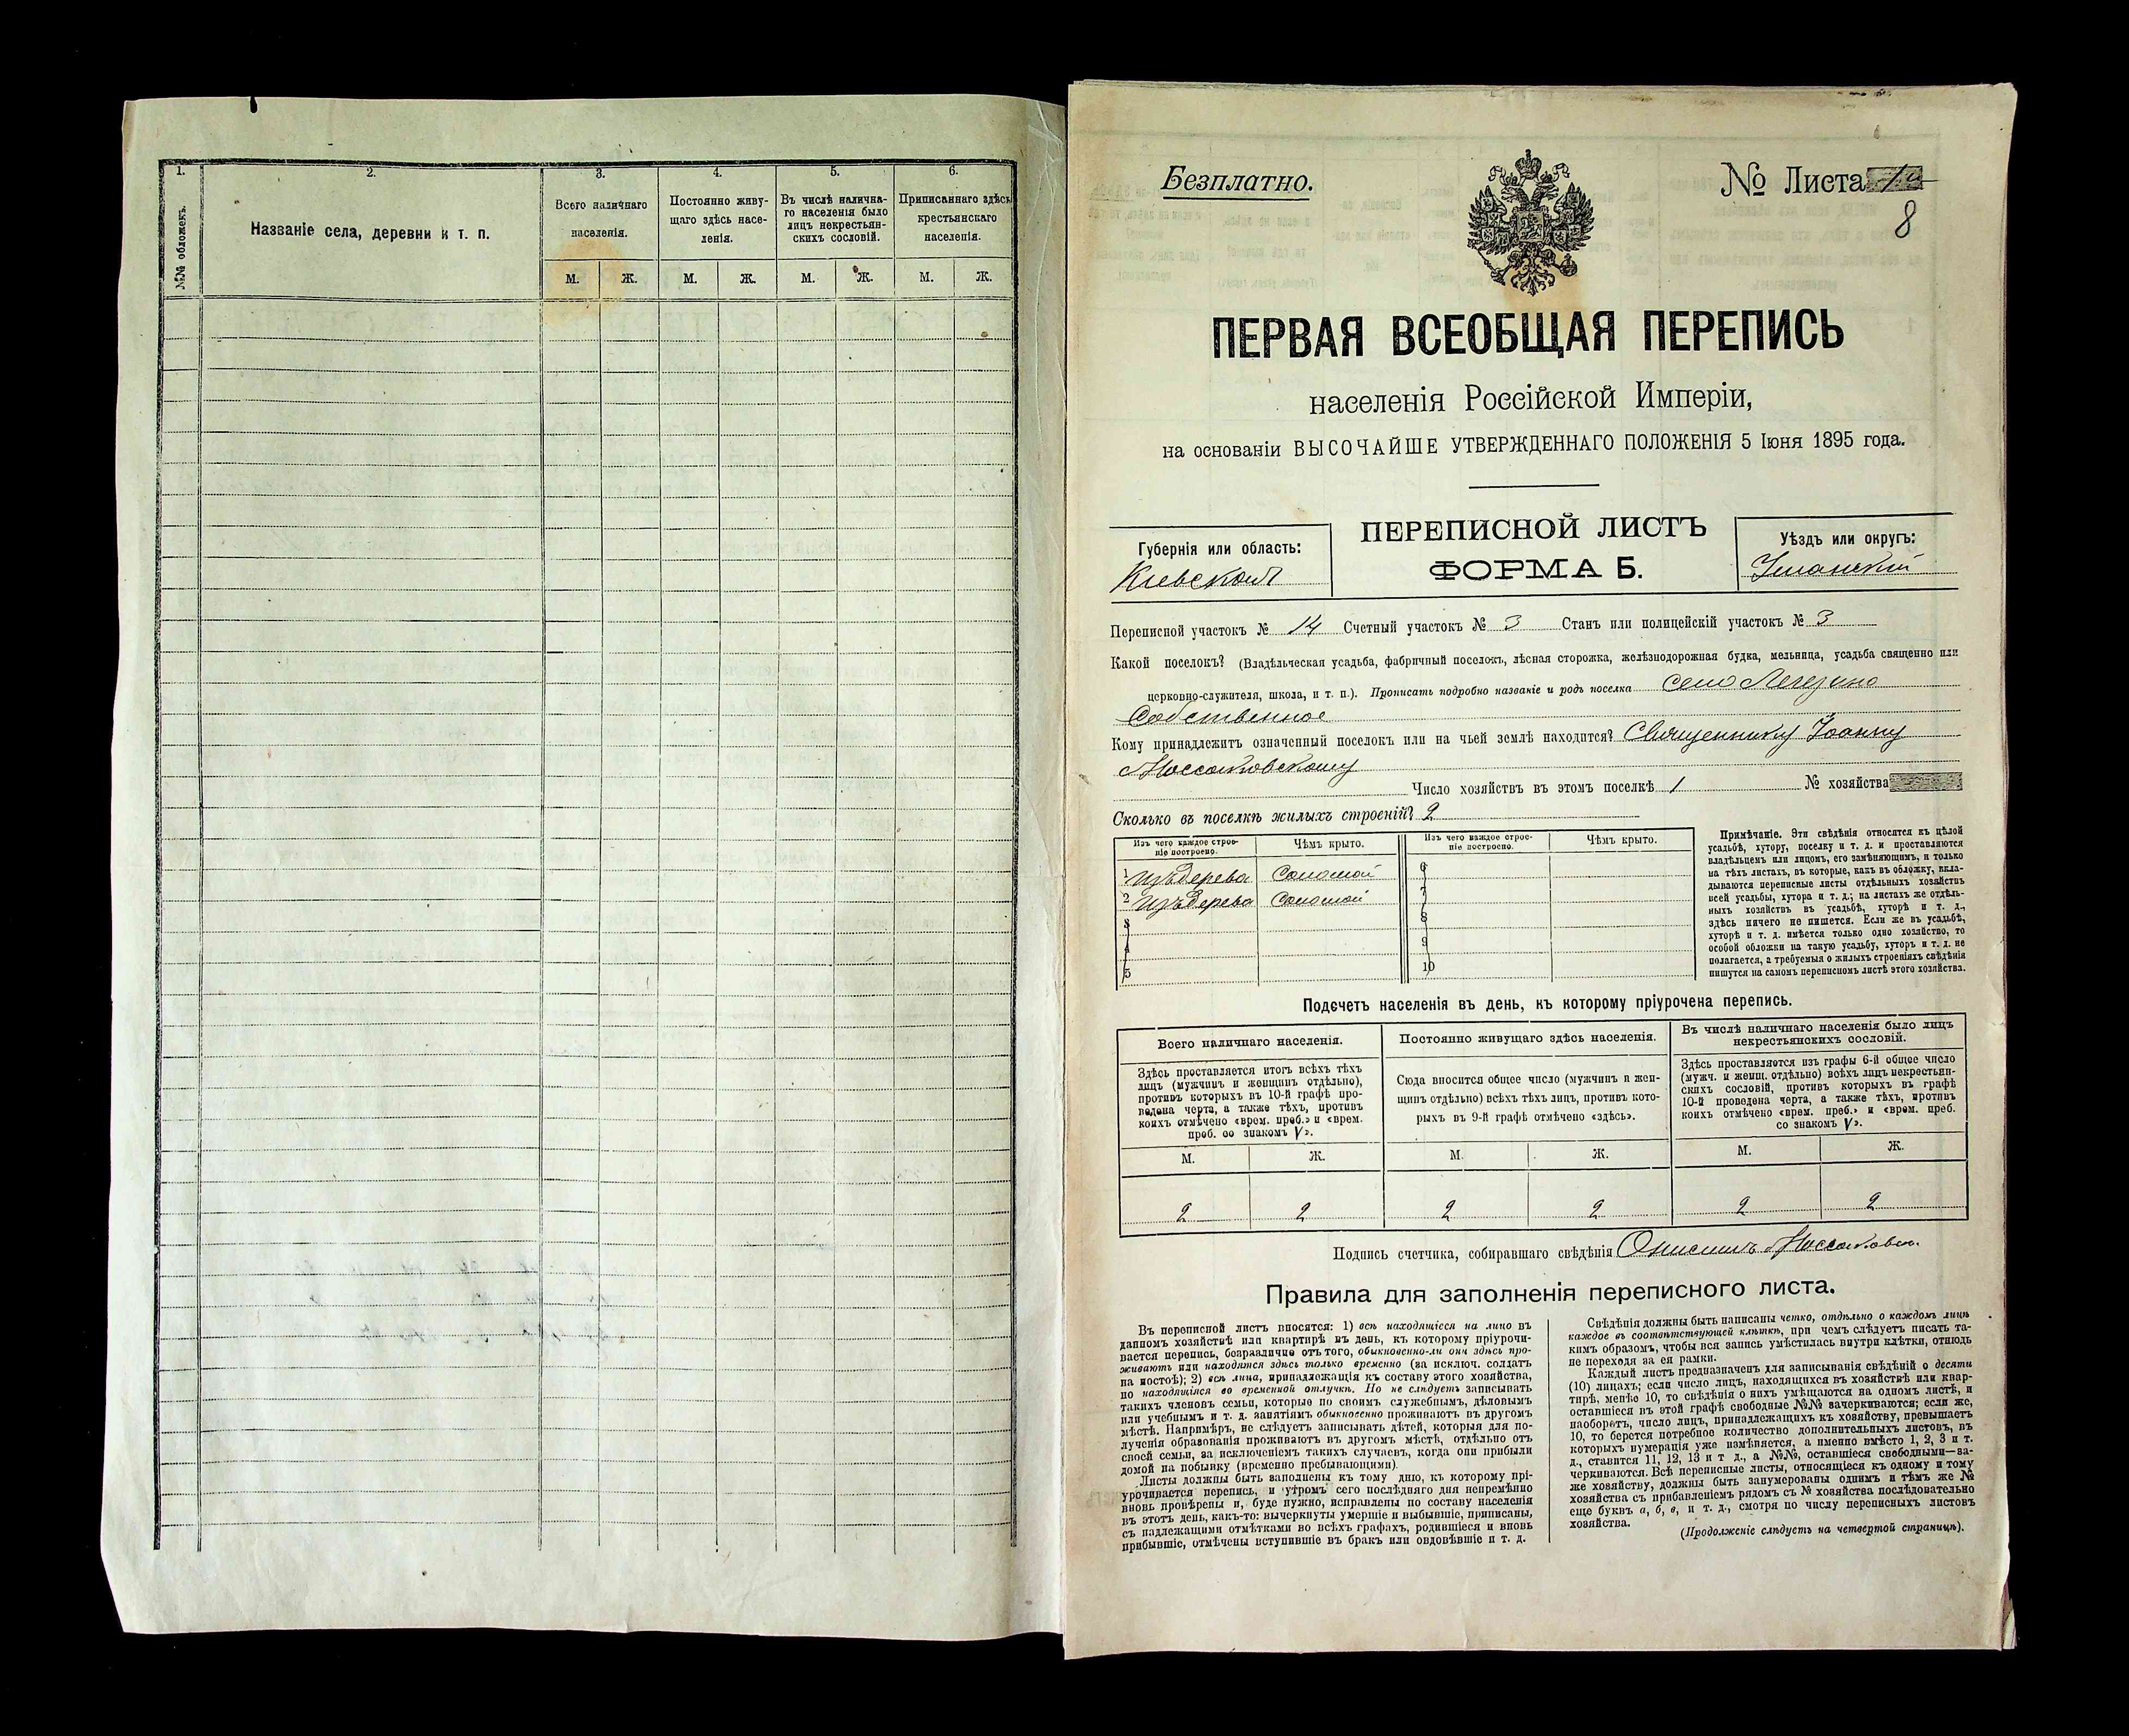 1.
2.
3.
4.
5.
6.
№№ обложекъ.
Названіе села, деревни и т. п.
Всего наличнаго
населенія.
Постоянно живу-
щаго здѣсь насе-
ленія.
Въ числѣ налична-
го населенія было
лицъ некрестьян-
скихъ сословій.
Приписаннаго здѣсь
крестьянскаго
населенія.
М. Ж. М. Ж. М. Ж. М. Ж.
Безплатно.
№ Листа
8
ПЕРВАЯ ВСЕОБЩАЯ ПЕРЕПИСЬ
населенія Россійской Имперіи,
на основаніи ВЫСОЧАЙШЕ УТВЕРЖДЕННАГО ПОЛОЖЕНІЯ 5 Іюня 1895 года.
Губернія или область:
Кіевская
ПЕРЕПИСНОЙ ЛИСТЪ
ФОРМА Б.
Уѣздъ или округъ:
Уманскій
Переписной участокъ № 14 Счетный участокъ № 3 Станъ или полицейскій участокъ № 3
Какой поселокъ? (Владѣльческая усадьба, фабричный поселокъ, лѣсная сторожка, желѣзнодорожная будка, мельница, усадьба священно или
церковно-служителя, школа, и т. п.). Прописать подробно названіе и родъ поселка село Легезино
Собственное
Кому принадлежитъ означенный поселокъ или на чьей землѣ находится? Священнику Іоанну
Моссаковскому
Число хозяйствъ въ этомъ поселкѣ 1 № хозяйства
Сколько въ поселкѣ жилыхъ строеній? 2
Изъ чего каждое строе-
ніе построено.
Чѣмъ крыто.
Изъ чего каждое строе-
ніе построено.
Чѣмъ крыто.
1 Изъ дерева Соломой 6
2 Изъ дерева Соломой 7
3 8
4 9
5 10
Примѣчаніе. Эти свѣдѣнія относятся къ цѣлой
усадьбѣ, хутору, поселку и т. д. и проставляются
владѣльцемъ или лицомъ, его замѣняющимъ, и только
на тѣхъ листахъ, въ которые, какъ въ обложку, вкла-
дываются переписные листы отдѣльныхъ хозяйствъ
всей усадьбы, хутора и т. д.; на листахъ же отдѣль-
ныхъ хозяйствъ въ усадьбѣ, хуторѣ и т. д.,
здѣсь ничего не пишется. Если же въ усадьбѣ,
хуторѣ и т. д. имѣется только одно хозяйство, то
особой обложки на такую усадьбу, хуторъ и т. д. не
полагается, а требуемыя о жилыхъ строеніяхъ свѣдѣнія
пишутся на самомъ переписномъ листѣ этого хозяйства.
Подсчетъ населенія въ день, къ которому пріурочена перепись.
Всего наличнаго населенія.
Здѣсь проставляется итогъ всѣхъ тѣхъ
лицъ (мужчинъ и женщинъ отдѣльно),
противъ которыхъ въ 10-й графѣ про-
ведена черта, а также тѣхъ, противъ
коихъ отмѣчено «врем. преб.» и «врем.
преб. со знакомъ V».
Постоянно живущаго здѣсь населенія.
Сюда вносится общее число (мужчинъ и жен-
щинъ отдѣльно) всѣхъ тѣхъ лицъ, противъ кото-
рыхъ въ 9-й графѣ отмѣчено «здѣсь».
Въ числѣ наличнаго населенія было лицъ
некрестьянскихъ сословій.
Здѣсь проставляется изъ графы 6-й общее число
(мужч. и женщ. отдѣльно) всѣхъ лицъ некрестьян-
скихъ сословій, противъ которыхъ въ графѣ
10-й проведена черта, а также тѣхъ, противъ
коихъ отмѣчено «врем. преб.» и «врем. преб.
со знакомъ V».
М. Ж. М. Ж. М. Ж.
2 2 2 2 2 2
Подпись счетчика, собиравшаго свѣдѣнія Онисимъ
Правила для заполненія переписного листа.
Въ переписной листъ вносятся: 1) всѣ находящіеся на лицо въ
данномъ хозяйствѣ или квартирѣ въ день, къ которому пріурочи-
вается перепись, безразлично отъ того, обыкновенно-ли они здѣсь про-
живаютъ или находятся здѣсь только временно (за исключ. солдатъ
на постоѣ); 2) всѣ лица, принадлежащія къ составу этого хозяйства,
но находящіяся во временной отлучкѣ. Но не слѣдуетъ записывать
такихъ членовъ семьи, которые по своимъ служебнымъ, дѣловымъ
или учебнымъ и т. д. занятіямъ обыкновенно проживаютъ въ другомъ
мѣстѣ. Напримѣръ, не слѣдуетъ записывать дѣтей, которыя для по-
лученія образованія проживаютъ въ другомъ мѣстѣ, отдѣльно отъ
своей семьи, за исключеніемъ такихъ случаевъ, когда они прибыли
домой на побывку (временно пребывающими).
Листы должны быть заполнены къ тому дню, къ которому прі-
урочивается перепись, и утромъ сего послѣдняго дня непремѣнно
вновь провѣрены и, буде нужно, исправлены по составу населенія
въ этотъ день, какъ-то: вычеркнуты умершіе и выбывшіе, приписаны,
съ надлежащими отмѣтками во всѣхъ графахъ, родившіеся и вновь
прибывшіе, отмѣчены вступившіе въ бракъ или овдовѣвшіе и т. д.
Свѣдѣнія должны быть написаны четко, отдѣльно о каждомъ лицѣ
каждое въ соотвѣтствующей клѣткѣ, при чемъ слѣдуетъ писать та-
кимъ образомъ, чтобы вся запись умѣстилась внутри клѣтки, отнюдь
не переходя за ея рамки.
Каждый листъ предназначенъ для записыванія свѣдѣній о десяти
(10) лицахъ; если число лицъ, находящихся въ хозяйствѣ или квар-
тирѣ, менѣе 10, то свѣдѣнія о нихъ умѣщаются на одномъ листѣ, и
оставшіеся въ этой графѣ свободные №№ зачеркиваются; если же,
наоборотъ, число лицъ, принадлежащихъ къ хозяйству, превышаетъ
10, то берется потребное количество дополнительныхъ листовъ, въ
которыхъ нумерація уже измѣняется, а именно вмѣсто 1, 2, 3 и т.
д., ставится 11, 12, 13 и т д., а №№, оставшіеся свободными—за-
черкиваются. Всѣ переписные листы, относящіеся къ одному и тому
же хозяйству, должны быть занумерованы однимъ и тѣмъ же №
хозяйства съ прибавленіемъ рядомъ съ № хозяйства послѣдовательно
еще буквъ а, б, в, и т. д., смотря по числу переписныхъ листовъ
хозяйства.
(Продолженіе слѣдуетъ на четвертой страницѣ).